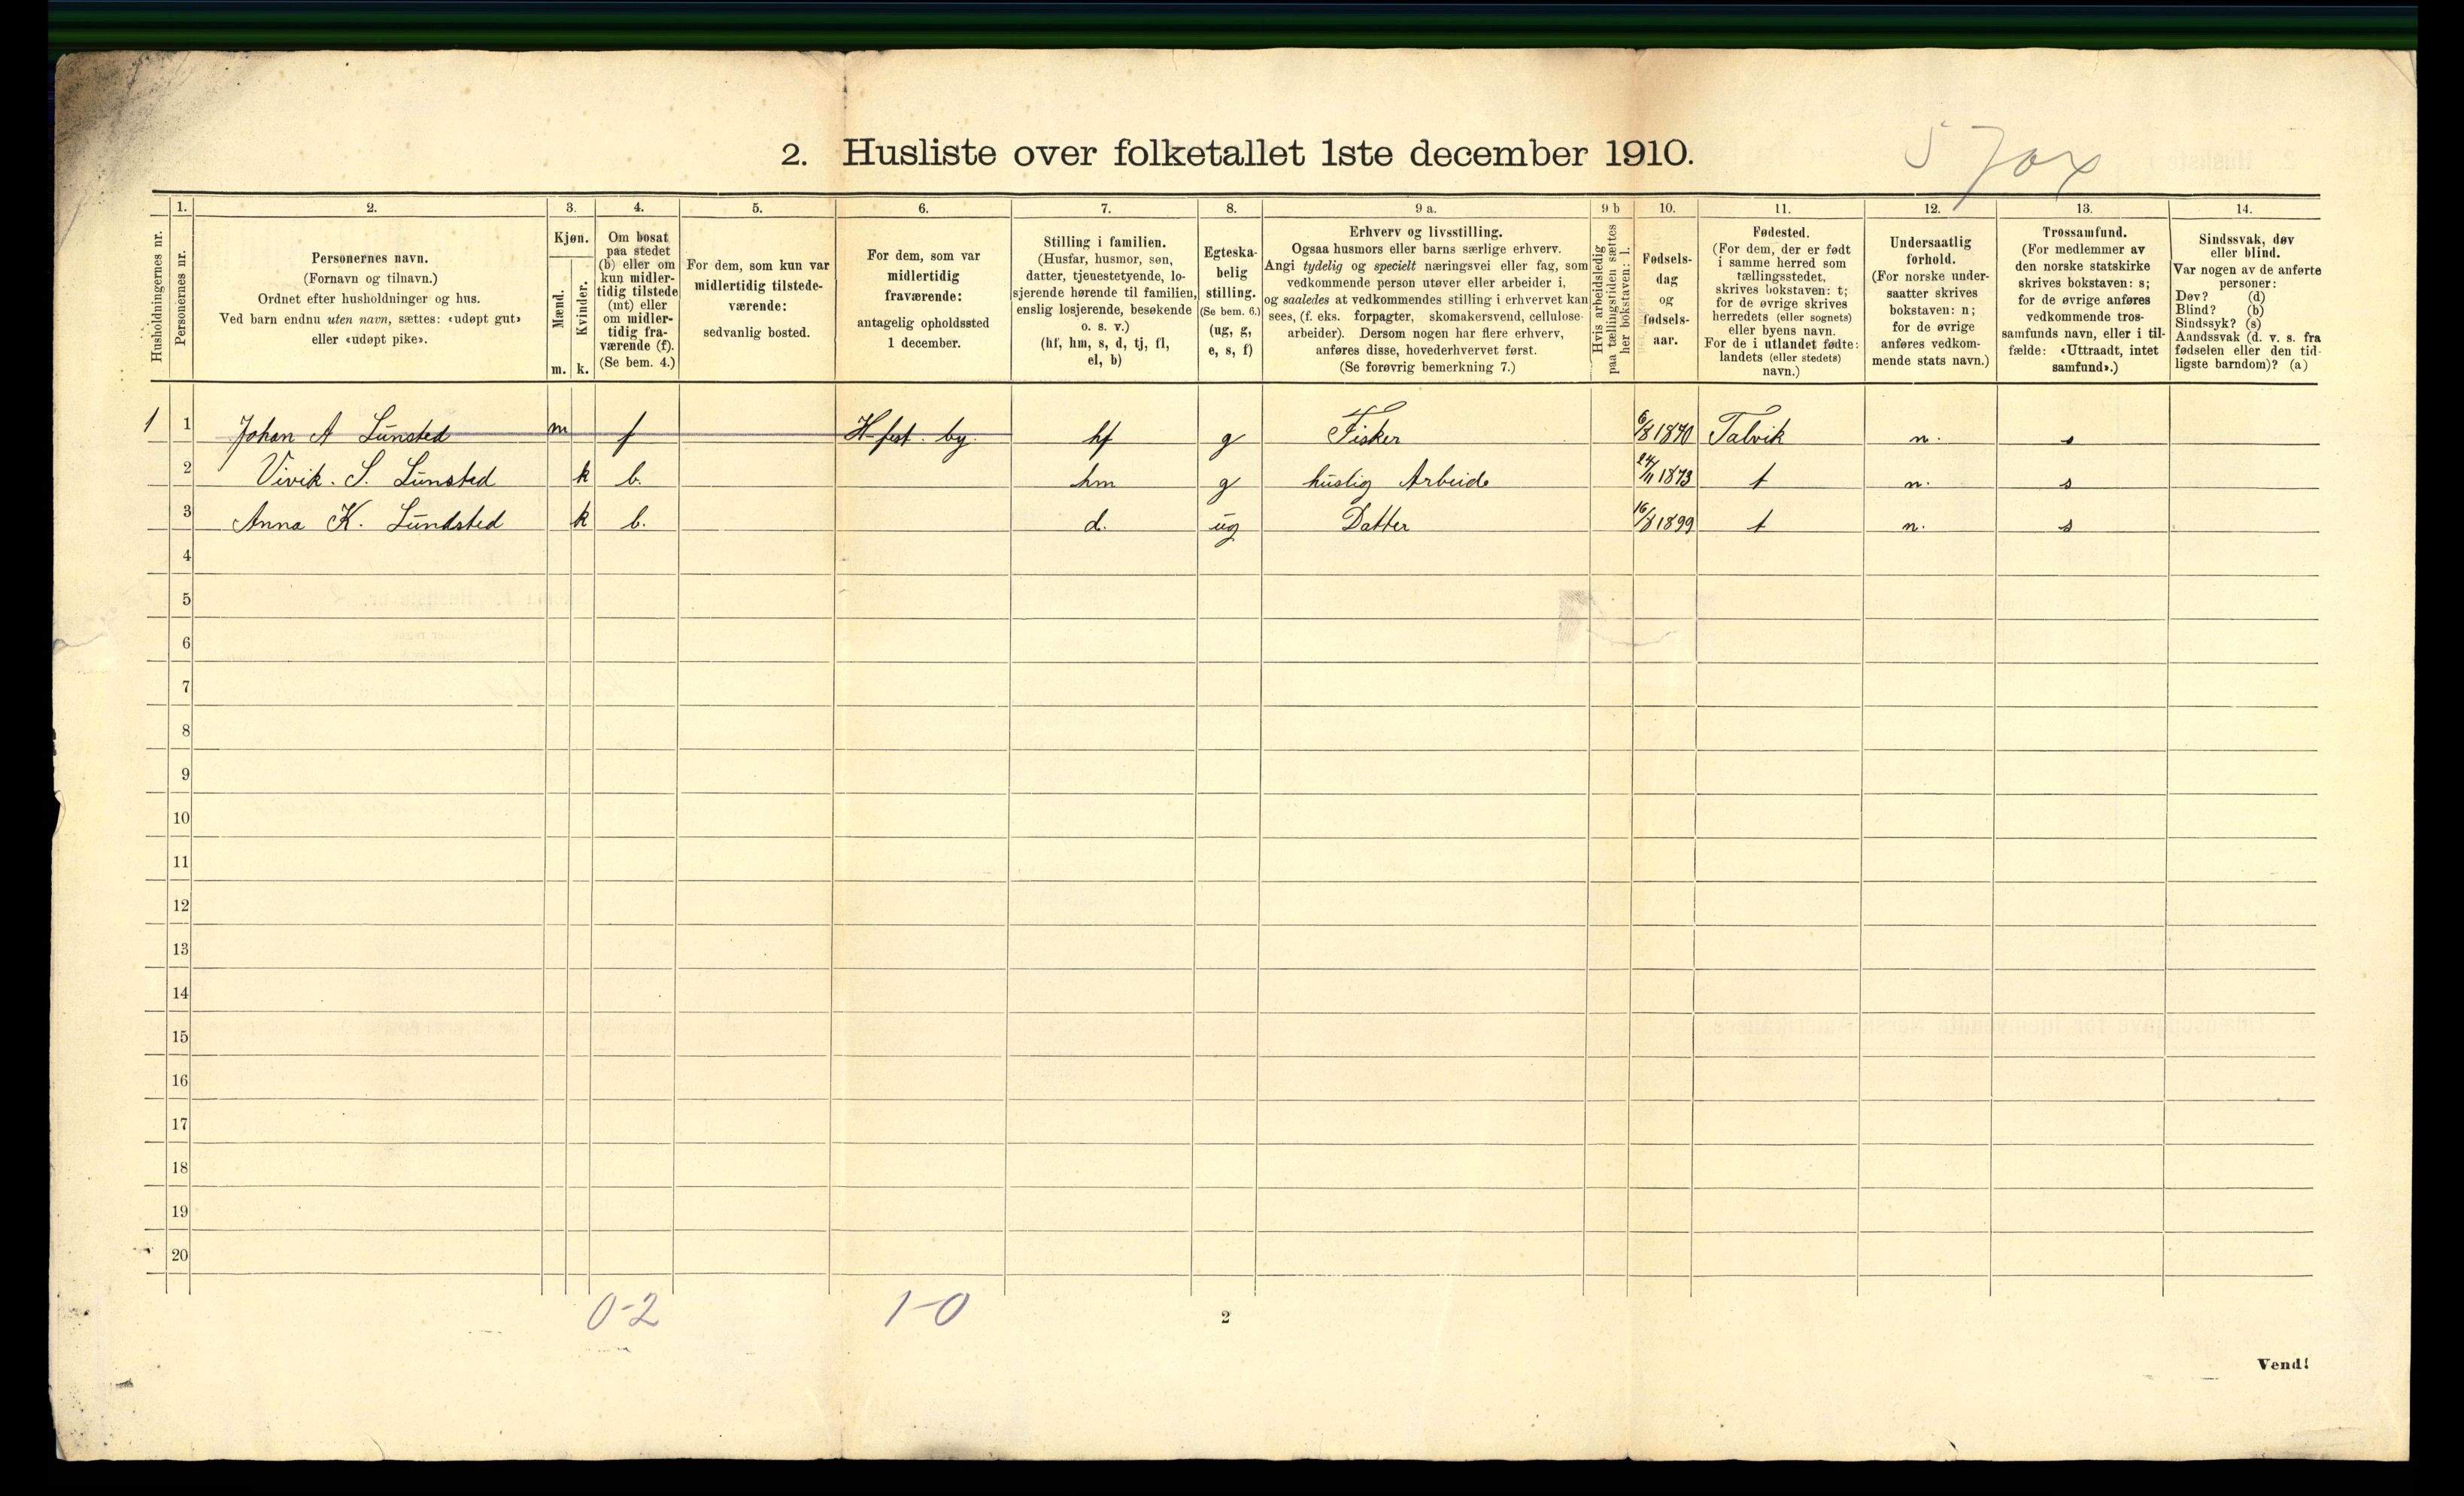 2. Husliste over folketallet 1ste december 1910.
Husholdningernes nr.
1.
Personernes nr.
2.
Personernes navn.
(Fornavn og tilnavn.)
Ordnet efter husholdninger og hus.
Ved barn endnu uten navn, sættes: «udøpt gut»
eller «udøpt pike».
3.
Kjøn.
Mænd.
Kvinder.
m.
k.
4.
Om bosat
paa stedet
(b) eller om
kun midler-
tidig tilstede
(mt) eller
om midler-
tidig fra-
værende (f).
(Se bem. 4.)
5.
For dem, som kun var
midlertidig tilstede-
værende:
sedvanlig bosted.
6.
For dem, som var
midlertidig
fraværende:
antagelig opholdssted
1 december.
7.
Stilling i familien.
(Husfar, husmor, søn,
datter, tjenestetyende, lo-
sjerende hørende til familien,
enslig losjerende, besøkende
o. s. v.)
(hf, hm, s, d, tj, fl,
el, b)
8.
Egteska-
belig
stilling.
(Se bem. 6.)
(ug, g,
e, s, f)
9 a.
Erhverv og livsstilling.
Ogsaa husmors eller barns særlige erhverv.
Angi tydelig og specielt næringsvei eller fag, som
vedkommende person utøver eller arbeider i,
og saaledes at vedkommendes stilling i erhvervet kan
sees, (f. eks. forpagter, skomakersvend, cellulose-
arbeider). Dersom nogen har flere erhverv,
anføres disse, hovederhvervet først.
(Se forøvrig bemerkning 7.)
9 b
Hvis arbeidsledig
paa tællingstiden sættes
her bokstaven: l.
10.
Fødsels-
dag
og
fødsels-
aar.
11.
Fødested.
(For dem, der er født
i samme herred som
tællingsstedet,
skrives bokstaven: t;
for de øvrige skrives
herredets (eller sognets)
eller byens navn.
For de i utlandet fødte:
landets (eller stedets)
navn.)
12.
Undersaatlig
forhold.
(For norske under-
saatter skrives
bokstaven: n;
for de øvrige
anføres vedkom-
mende stats navn.)
13.
Trossamfund.
(For medlemmer av
den norske statskirke
skrives bokstaven: s;
for de øvrige anføres
vedkommende tros-
samfunds navn, eller i til-
fælde: «Uttraadt, intet
samfund».)
14.
Sindssvak, døv
eller blind.
Var nogen av de anførte
personer:
Døv? (d)
Blind? (b)
Sindssyk? (s)
Aandssvak (d. v. s. fra
fødselen eller den tid-
ligste barndom)? (a)
1 1 Johan A Lunsted m f H-fest. by. hf g Fisker 6/8 1870 Talvik n. s
2 Vivik. S. Lunsted k b. hm g huslig Arbeide 24/11 1873 t n. s
3 Anna K. Lundsted k b. d. ug Datter 16/8 1899 t n. s
4
5
6
7
8
9
10
11
12
13
14
15
16
17
18
19
20
0-2 1-0
2
Vend!